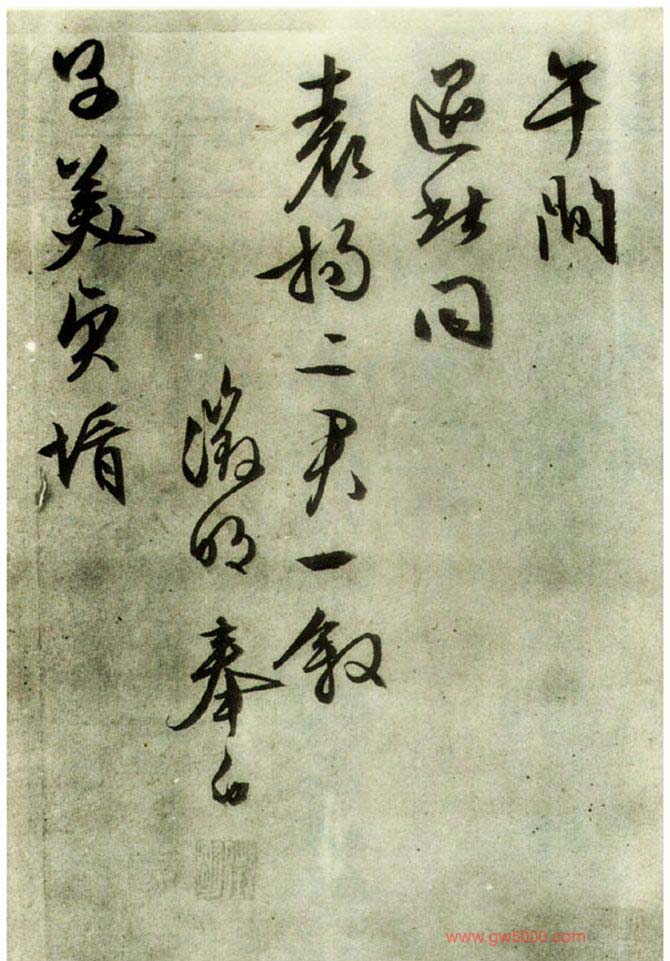 午間
過此同
袁楊二君一敘
徵明奉白
子美賢壻
www.gw5000.com